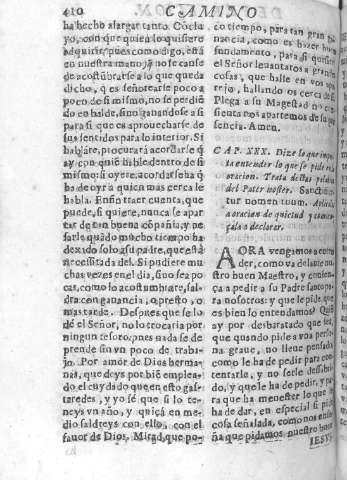 410 CAMINO
ha hecho alargar tanto. Cōclu
yo, con que quien lo quisiere
adquirir, pues como digo, està
en nuestra mano, no se canse
de acostūbrarse a lo que queda
dicho, q es señorearse poco a
poco de si mismo, no se perdiē
do en balde, sino ganandose a si
para si que es aprouecharse de
sus sentidos para lo interior. Si
hablâre, procurarà acordarse q̃
ay con quiē hable dentro de si
mismo: si oyere, acordarseha q̃
ha de oyr a quien mas cerca le
habla. Enfin traer cuenta, que
puede, si quiere, nunca se apar
tar de tan buena cōpañia, y pe
sarle quādo mucho tiempo ha
dexado solo a su padre, que està
necessitada del. Si pudiere mu
chas vezes en el dia, sino sea po
cas, como lo acostumbrare, sal
drà con ganancia, o presto, o
mas tarde. Despues que se lo
dè el Señor, no lo trocaria por
ningun tesoro, pues nada se de
prende sin vn poco de traba-
jo. Por amor de Dios herma-
nas, que deys por biē emplea-
do el cuydado que en esto gas-
taredes, y yo sè que si lo te-
neys vn año, y quiçà en me-
dio saldreys con ello, con el
fauor de Dios. Mirad, que po-
co tiempo, para tan gran
nancia, como es hazer buen
fundamento, para si quisiere
el Señor leuantaros a grandes
cosas, que halle en vos apa
rejo, hallando os cerca de si.
Plega a su Magestad no con
sienta nos apartemos de su pre
sencia. Amen.
CAP. XXX. Dize lo que impor
ta entender lo que se pide en la
oracion. Trata destas palabras
del Pater noster. Sanctifice
tur nomen tuum.
a oracion de quietud y comien
çala a declarar.
AORA vengamos a enten
der, como va delante nue
stro buen Maestro, y comien
ça a pedir a su Padre santo pa
ra nosotros: y que le pide, que
es bien lo entendamos! Quien
ay por desbaratado que sea,
que quando pide a vna perso
na graue, no lleue pensado
como le ha de pedir para con
tentarle, y no serle dessabri
do, y que le ha de pedir, y pa-
ra que ha menester lo que le
ha de dar, en especial si pide
cosa señalada, como nos ense-
ña que pidamos nuestro buen
IESVS